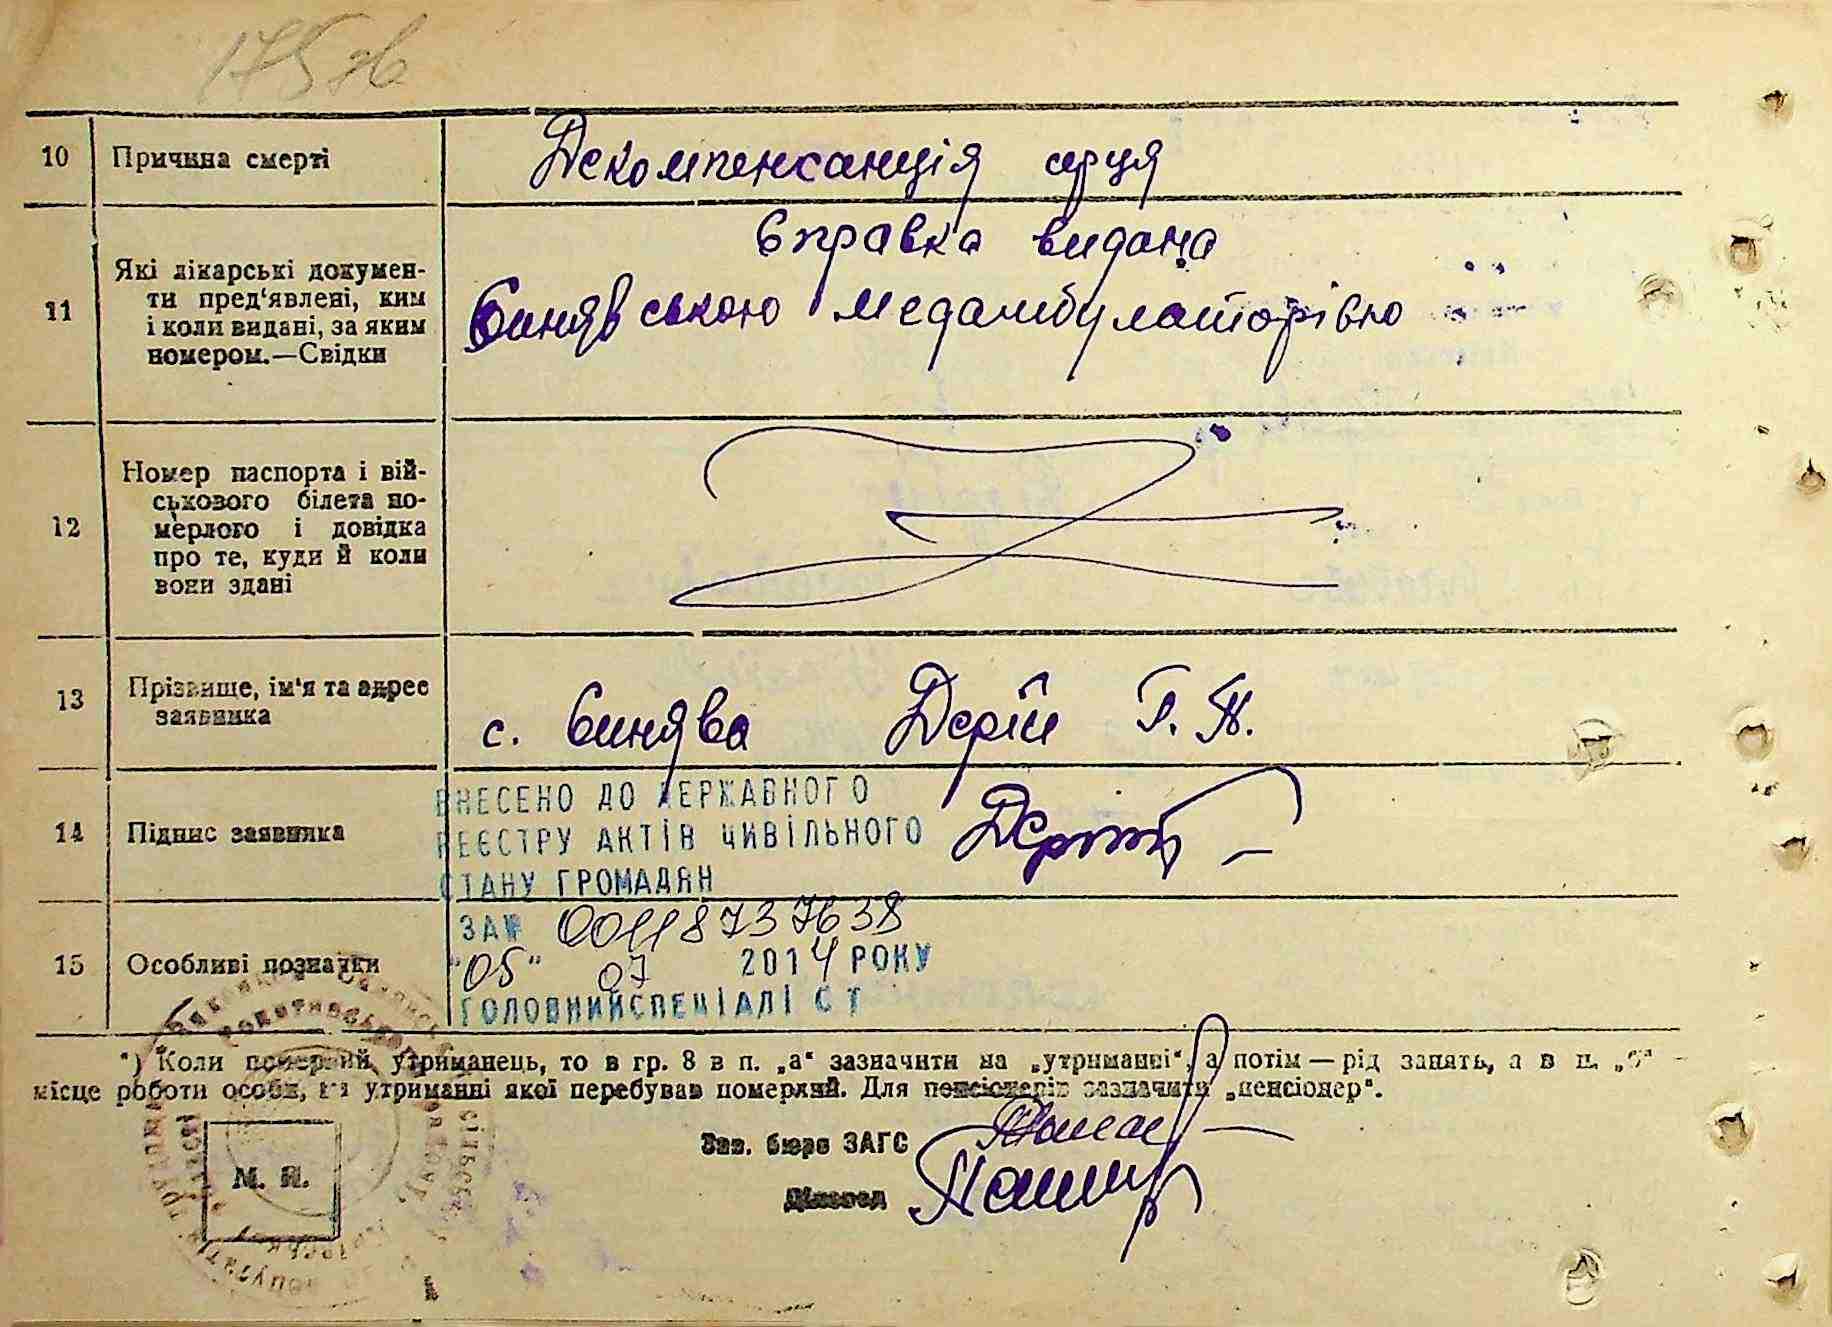 10 Причина смерті Декомпенсанція серця
11 Які лікарські докумен-
ти пред'явлені, ким
і коли видані, за яким
номером.—Свідки
Справка видана
Синявською медамбулаторівю
12 Номер паспорта і вій-
ськового білета по-
мерлого і довідка
про те, куди й коли
вони здані
13 Прізвище, ім'я та адрес
заявника
с. Синява Дерій Г. П.
14 Підпис заявника
ВНЕСЕНО ДО ДЕРЖАВНОГО
РЕЄСТРУ АКТІВ ЦИВІЛЬНОГО
СТАНУ ГРОМАДЯН
ЗА № 00118737638
"05" 07 2014 РОКУ
ГОЛОВНИЙ СПЕЦІАЛІСТ
15 Особливі позначки
*) Коли померлий, утриманець, то в гр. 8 в п. „а“ зазначити на „утриманні“, а потім — рід занять, а в п. „б“ —
місце роботи особи, на утриманні якої перебував померлий. Для пенсіонерів зазначити „пенсіонер“.
Зав. бюро ЗАГС
Діловод
М. П.